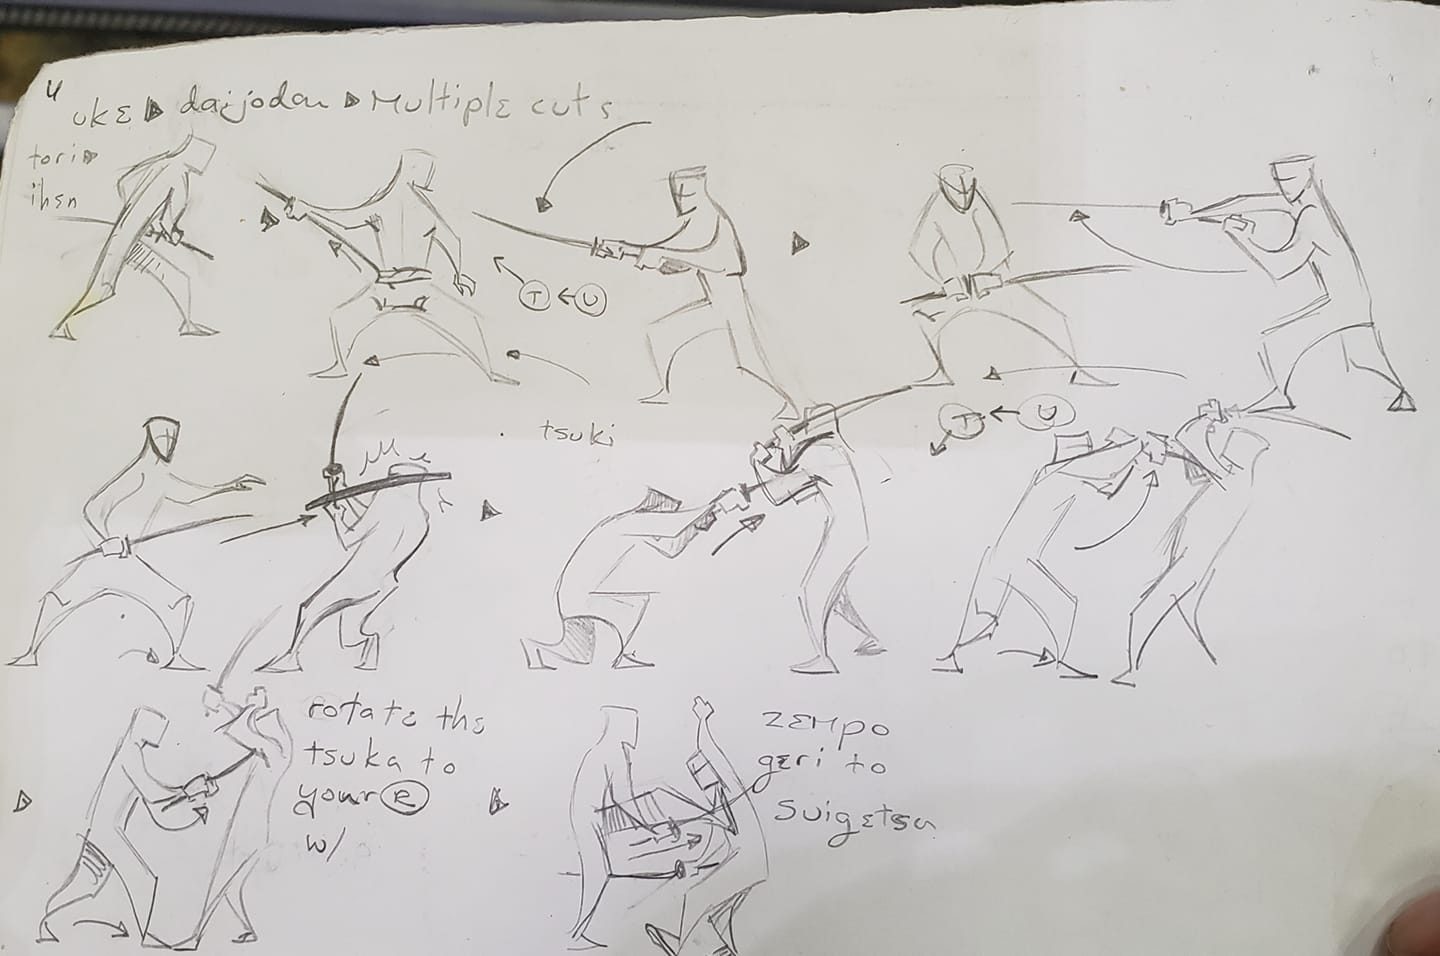 4
uke ▶ daijodan ▶ Multiple cuts
tori ▶
ihen
T ← U
tsuki
T ← U
rotate the
tsuka to
your R
w/
zempo
geri to
suigetsu